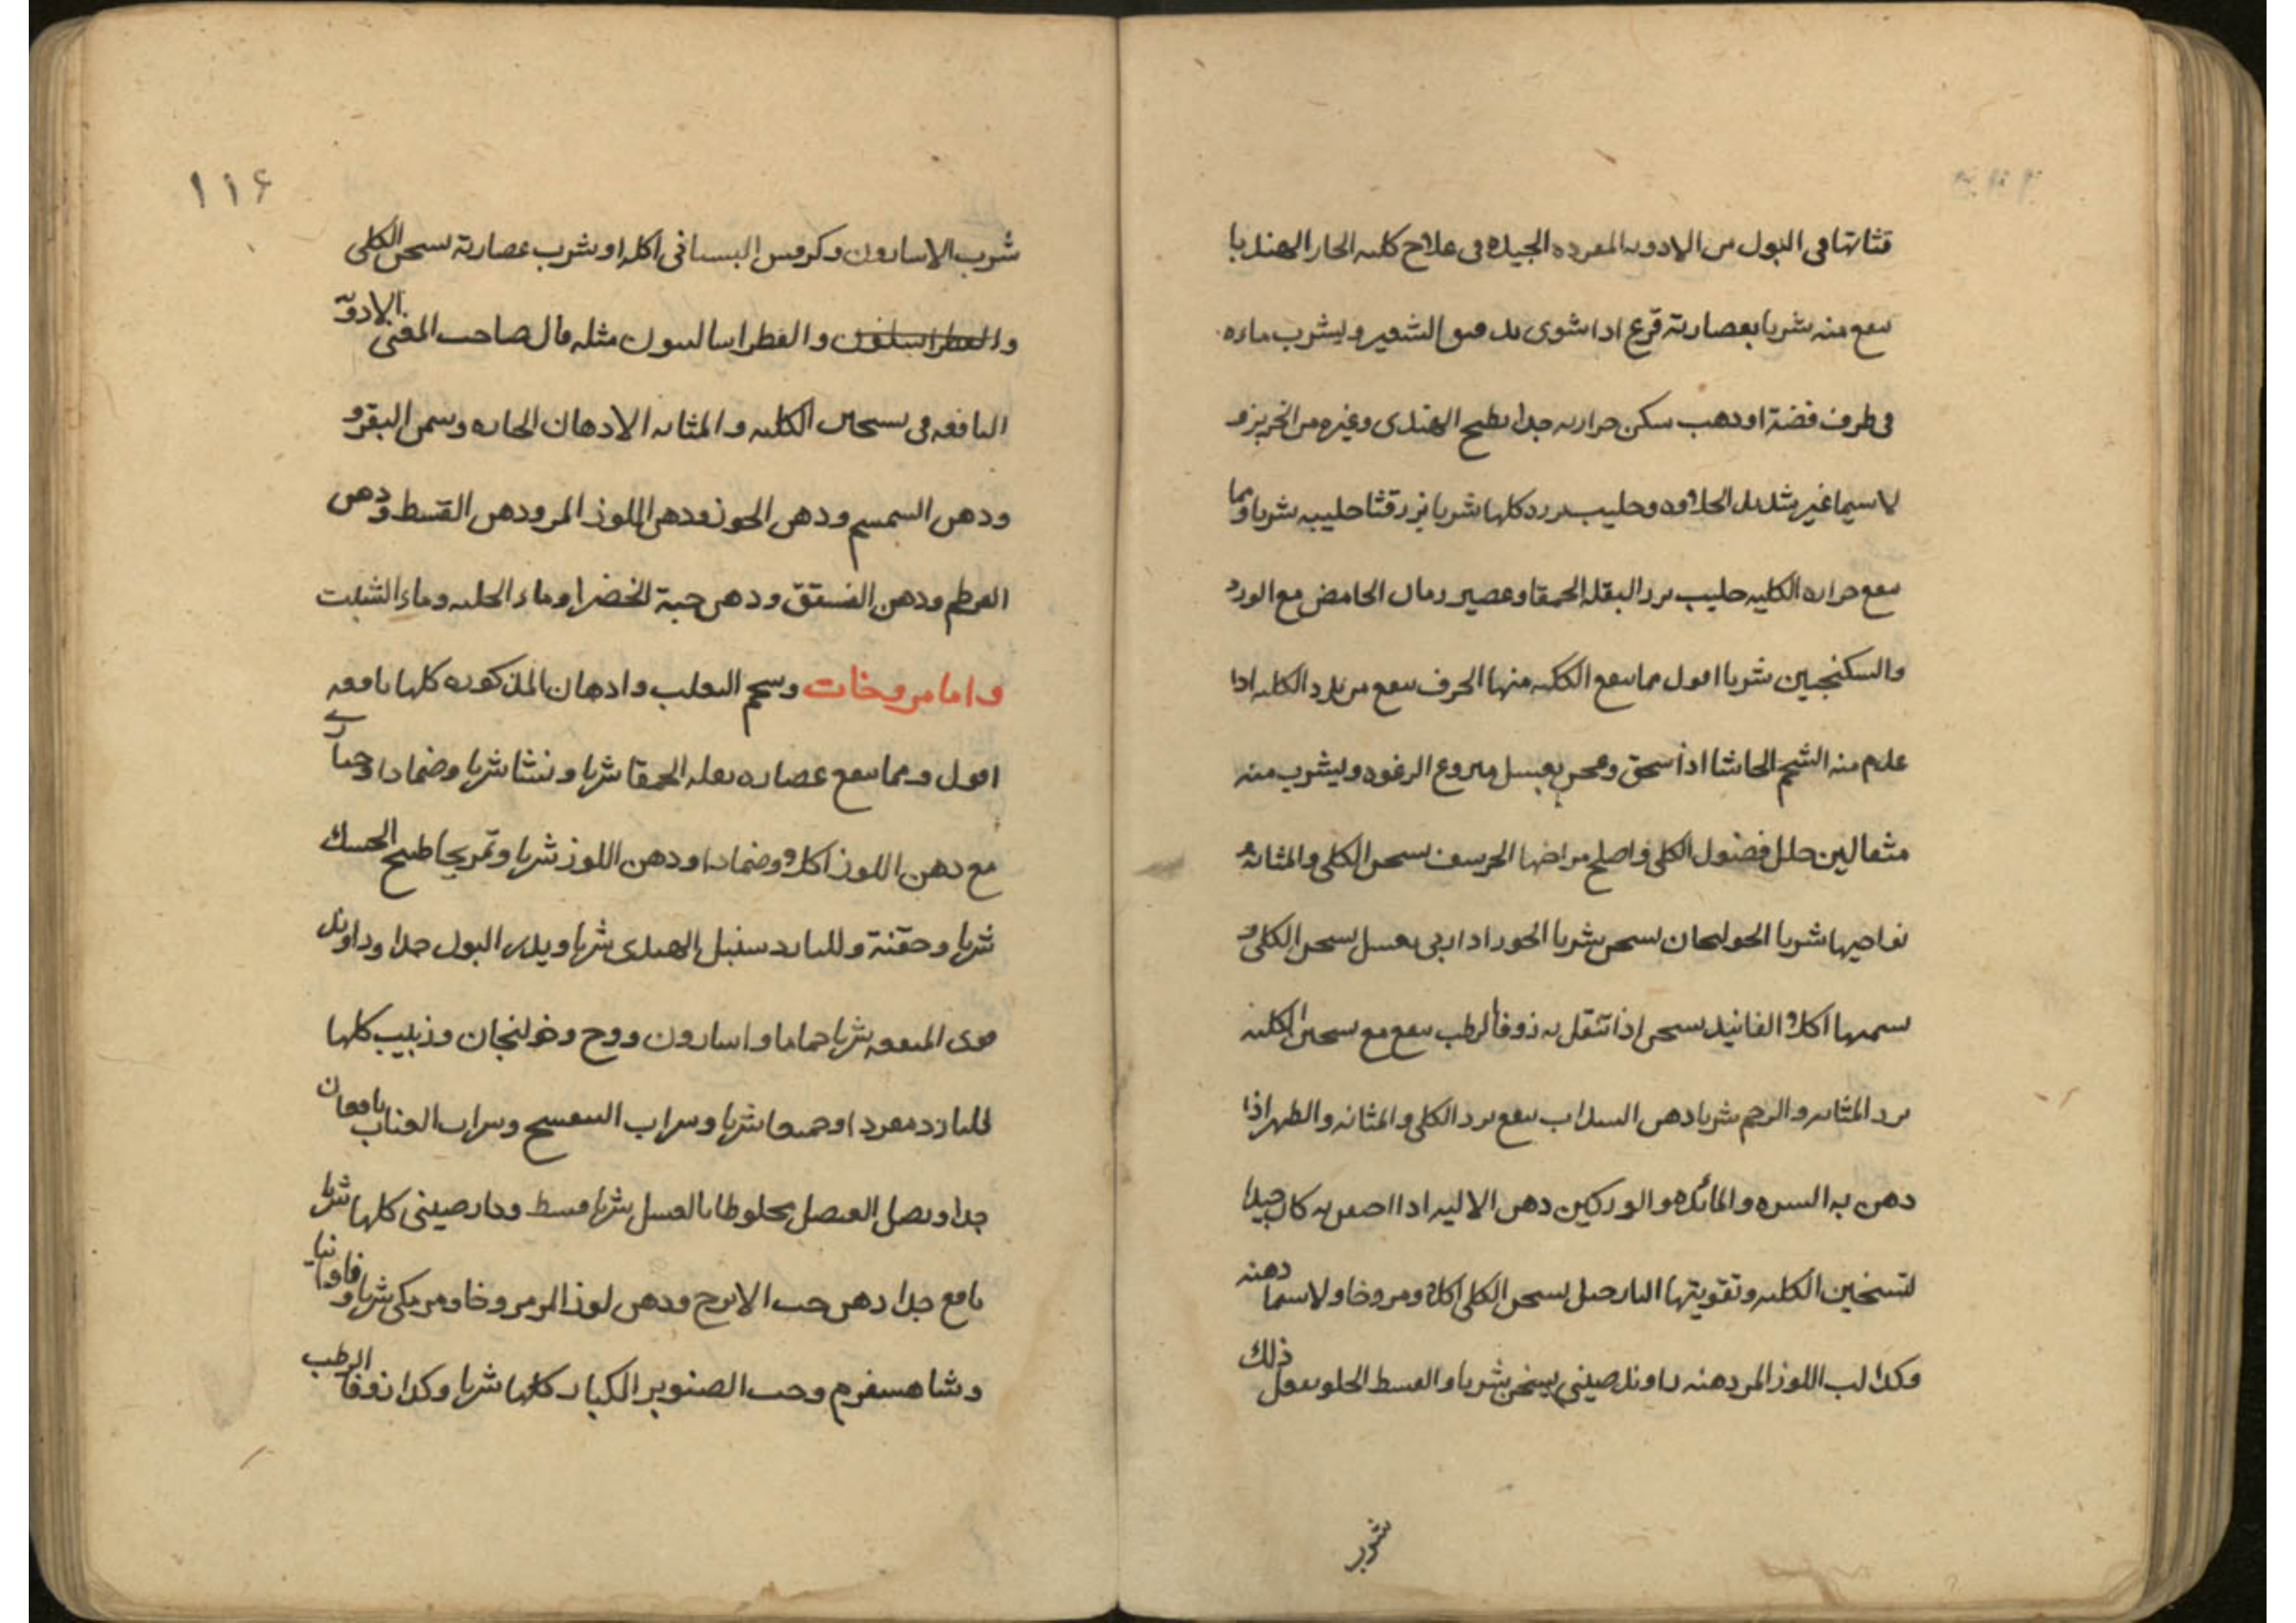 قثائها فى البول من الادويه المفرده الجيده فى علاج كليه الحار الهندبا
ينفع منه شربا بعصارته قرع اذا شوى الشعير ويشرب ماءه
فى ظرف فضة او ذهب سكن حرارته جدا بطيخ الهندى وغيره من الخربز و
لاسيما غير شديد الحلاوه وحليب بزره كلها شربا بزر قثا حليبه شربا ومما
ينفع حراره الكليه حليب بزر البقله الحمقا وعصير رمان الحامض مع الورد
والسكنجبين شربا اقول مما ينفع الكليه منها الحرف ينفع من برد الكليه اذا
عدم منه الشحم الحاشا اذا سحق وعجن بعسل منزوع الرغوه ويشرب منه
مثقالين حلل فضول الكلى واصلح مراضها الحرسف يسخن الكلى والمثانه و
نواحيها شربا الخولنجان يسخن شربا الجوز اذا ربى بعسل يسخن الكلى و
سمنها اكلا الفانيد يسخن اذا تنقل به زوفا الرطب ينفع مع سخين الكليه
برد المثانه والرحم شربا دهن السداب ينفع برد الكلى والمثانه والظهر اذا
دهن به السره والمائده والوركين دهن الاليه اذا احتقن به كان جيدا
لتسخين الكليه وتقويتها النارجيل يسخن الكلى اكلا ومروخا ولاسيما دهنه
وكذا لب اللوز المر دهنه راوند صينى يسخن شربا والقسط الحلو يفعل ذلك
شرب
١١٦
شرب الاسارون وكرفس البستانى اكله او شرب عصارته يسخن الكلى
والفطراساليون والفطراساليون مثله قال صاحب المغنى الادويه
النافعه فى تسخين الكليه والمثانه الادهان الحاره وسمن البقر و
ودهن السمسم ودهن الجوز ودهن اللوز المر ودهن القسط ودهن
القرطم ودهن الفستق ودهن حبة الخضرا وماء الحلبه وماء الشبت
واما مروخات وشحم الثعلب وادهان المذكوره كلها نافعه
اقول ومما ينفع عصاره بقله الحمقا شربا ونشا شربا وضمادا وخبازى
مع دهن اللوز اكلا وضمادا ودهن اللوز شربا وتمريخا طبيخ الحسك
شربا وحقنة وللبارد سنبل الهندى شربا ويدر البول جدا وراوند
قوى المنفعه شربا حماما واسارون ووج وخولنجان وزبيب كلها
للبارد مفردا وجميعا شربا وشراب البنفسج وشراب العناب نافعان
جدا وبصل العنصل مخلوطا بالعسل شربا قسط ودارصينى كلها شربا
نافع جدا دهن حب الاترج ودهن لوز المر مروخا ومر مكى شربا وفاوانيا
وشاهسفرم وحب الصنوبر الكبار كلها شربا وكذا زوفا الرطب